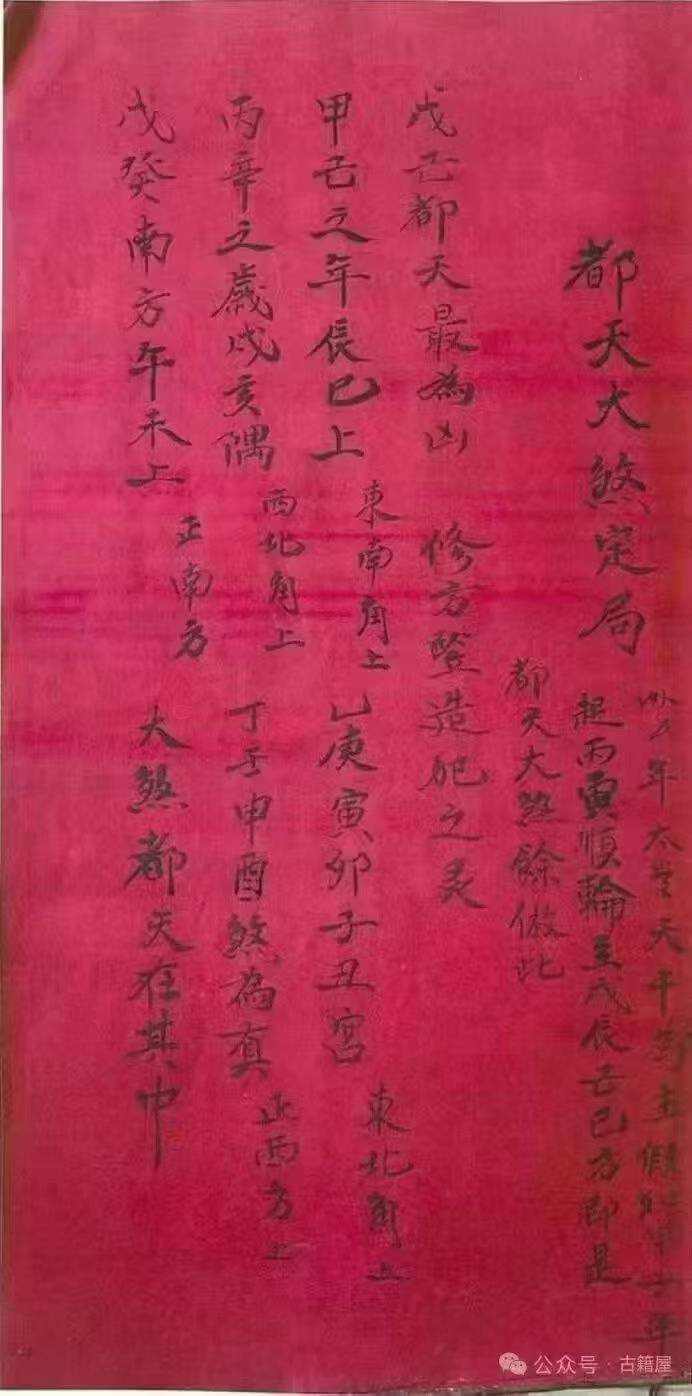 都天大煞定局
以年太天干為主假如甲子年
起丙寅順輪至戊辰己巳方即是
都天大煞餘倣此
戊己都天最為凶 修方豎造犯之灵
甲己之年辰巳上 東南角上 乙庚寅卯子丑宮 東北角上
丙辛之歲戌亥隅 西北角上 丁壬申酉煞為真 正西方上
戊癸南方午未上 正南方 大煞都天在其中
公众号·古籍屋